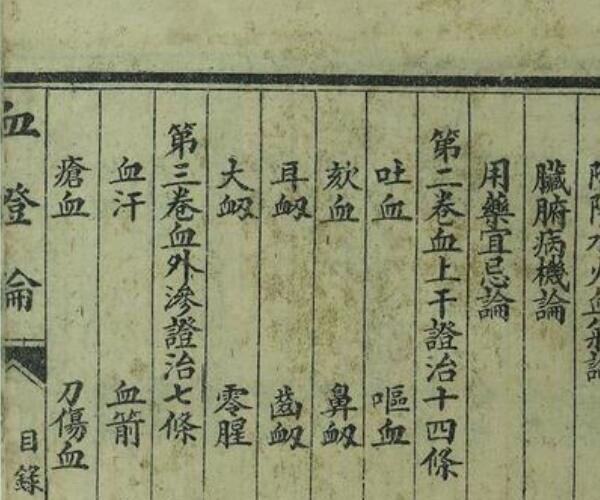 水火血氣論
臟腑病機論
用藥宜忌論
第二卷血上干證治十四條
吐血 嘔血
欬血 鼻衂
耳衂 齒衂
大衂 零腥
第三卷血外滲證治七條
血汗 血箭
瘡血 刀傷血
血證論 目錄